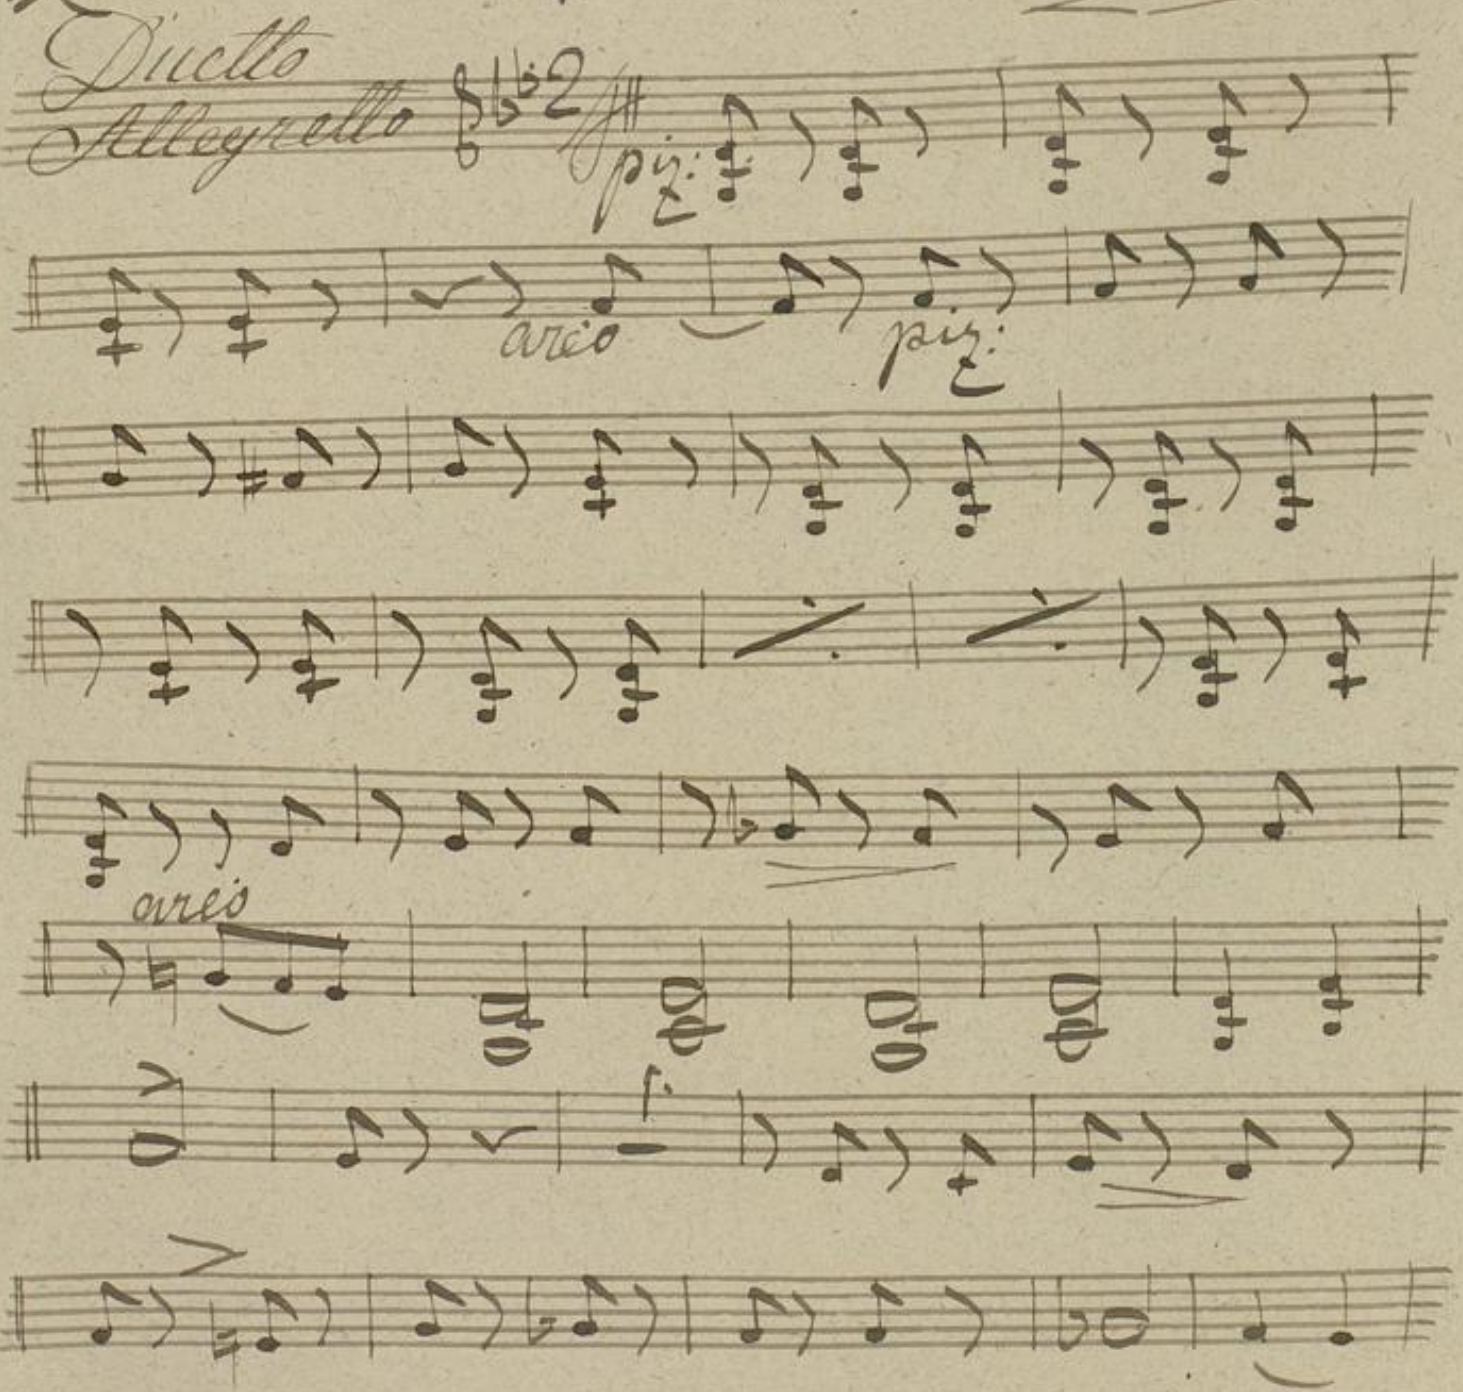 Duetto
Allegretto 2 piz:
arco piz:
arco
1.